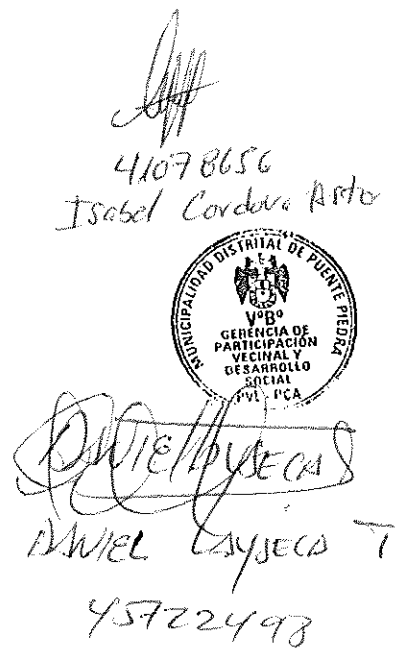 41078656
Isabel Cordova
MUNICIPALIDAD DISTRITAL DE PUENTE PIEDRA
VºBº
GERENCIA DE
PARTICIPACIÓN
VECINAL Y
DESARROLLO
SOCIAL
PVL - PCA
DANIEL LAYSECA
DANIEL LAYSECA T
45722498